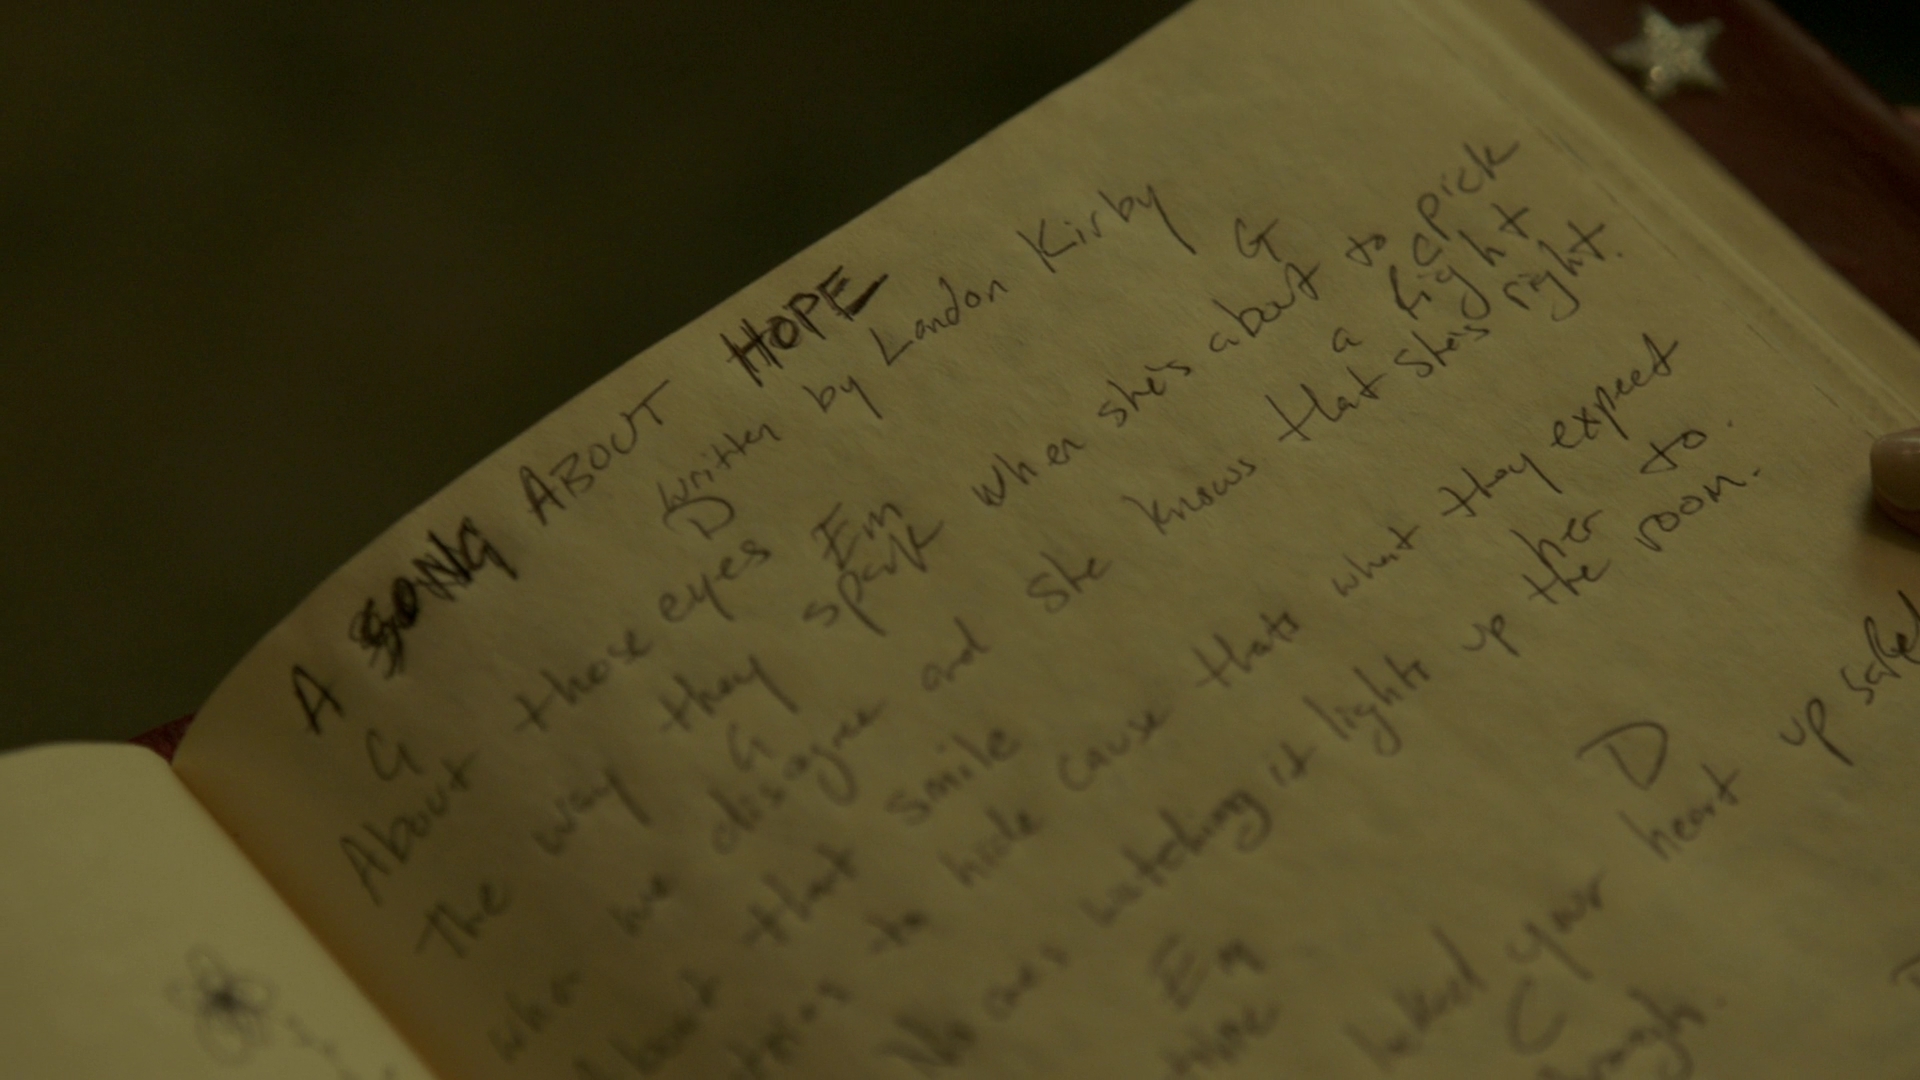 A SONG ABOUT HOPE
written by Landon Kirby
G D Em G
About those eyes
The way they spark when she's about to pick
G C
when we disagree and she knows that she's right.
a fight
About that smile
tries to hide cause thats what they expect
her to.
No ones watching it lights up the room.
Em D
locked your heart up
C